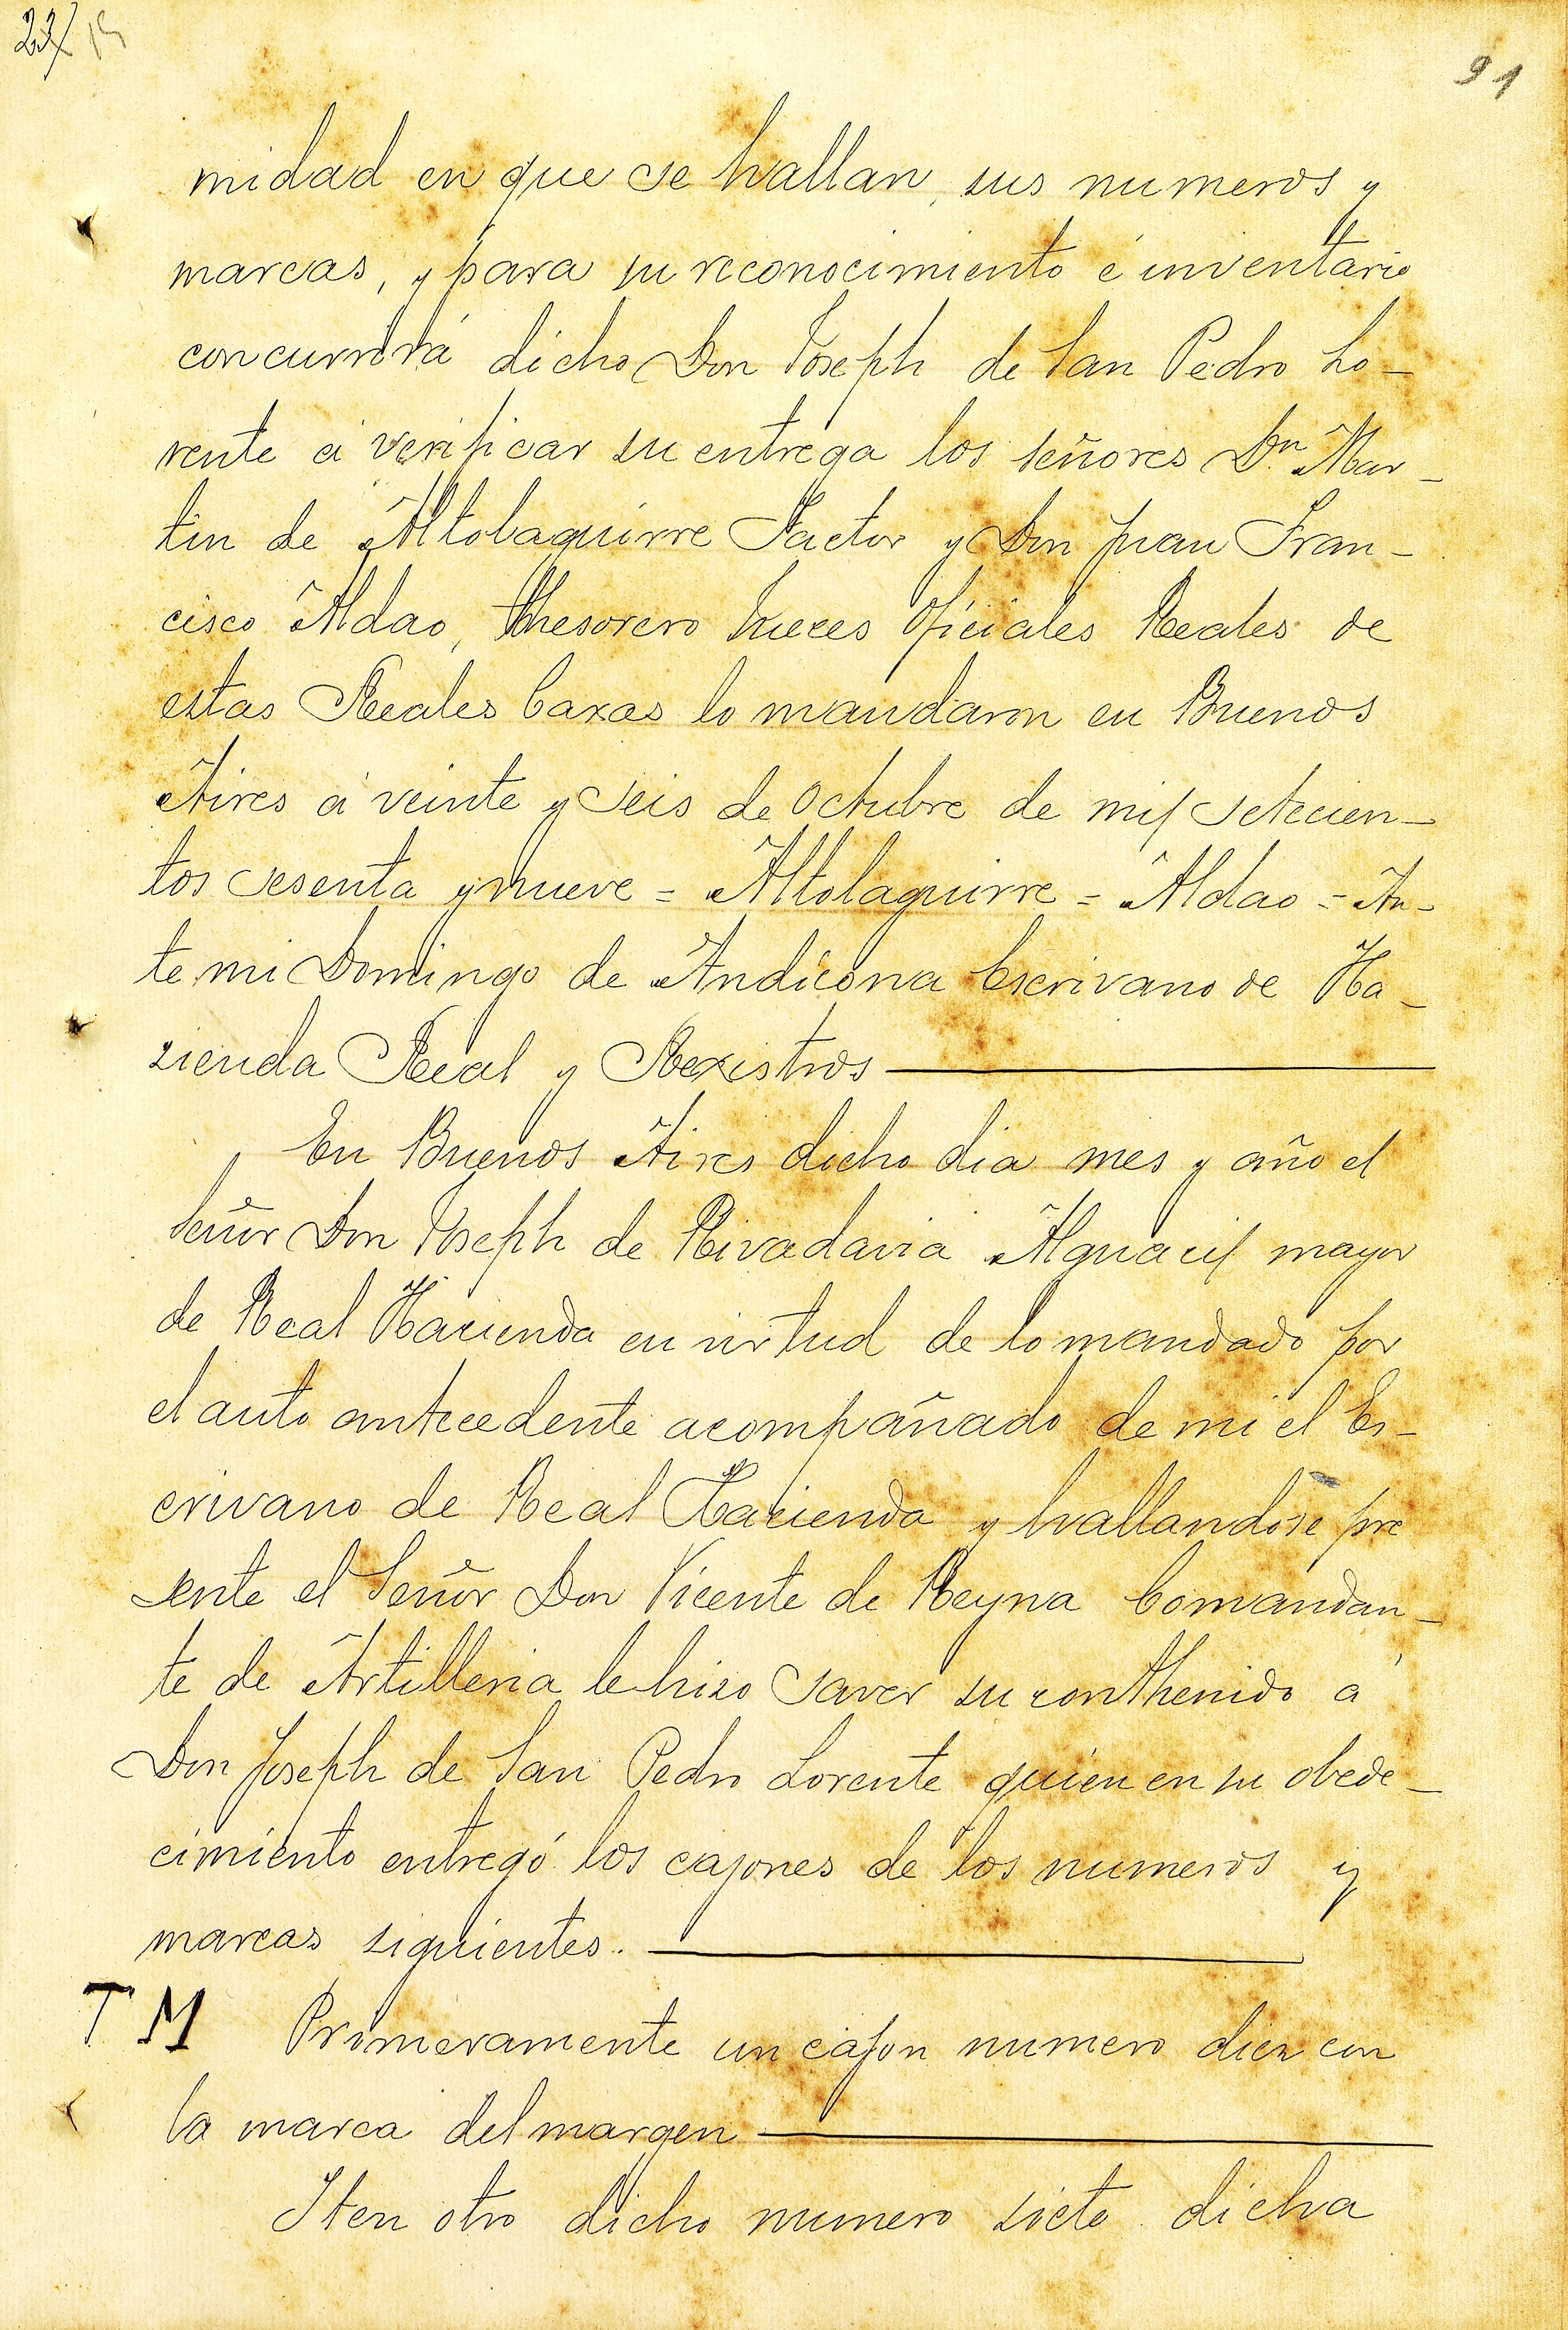 23/
91
midad en que se hallan, sus numeros y
marcas, y para su reconocimiento é inventario
concurrirá dicho Don Joseph de San Pedro Lo-
rente á verificar su entrega los señores Dn. Mar-
tin de Altolaguirre Factor y Don Juan Fran-
cisco Aldao, Thesorero Jueces Oficiales Reales de
estas Reales Caxas lo mandaron en Buenos
Aires á veinte y seis de Octubre de mil setecien-
tos sesenta y nueve = Altolaguirre = Aldao = An-
te mi Domingo de Andicona Escrivano de Ha-
zienda Real y Rexistros
En Buenos Aires dicho dia mes y año el
Señor Don Joseph de Rivadavia Alguacil mayor
de Real Hacienda en virtud de lo mandado por
el auto antecedente acompañado de mi el Es-
crivano de Real Hacienda y hallandose pre
sente el Señor Don Vicente de Reyna Comandan-
te de Artilleria le hizo saver su conthenido á
Don Joseph de San Pedro Lorente quien en su obede-
cimiento entregó los cajones de los numeros y
marcas siguientes.
T M Primeramente un cajon numero diez con
la marca del margen
Iten otro dicho numero siete dicha